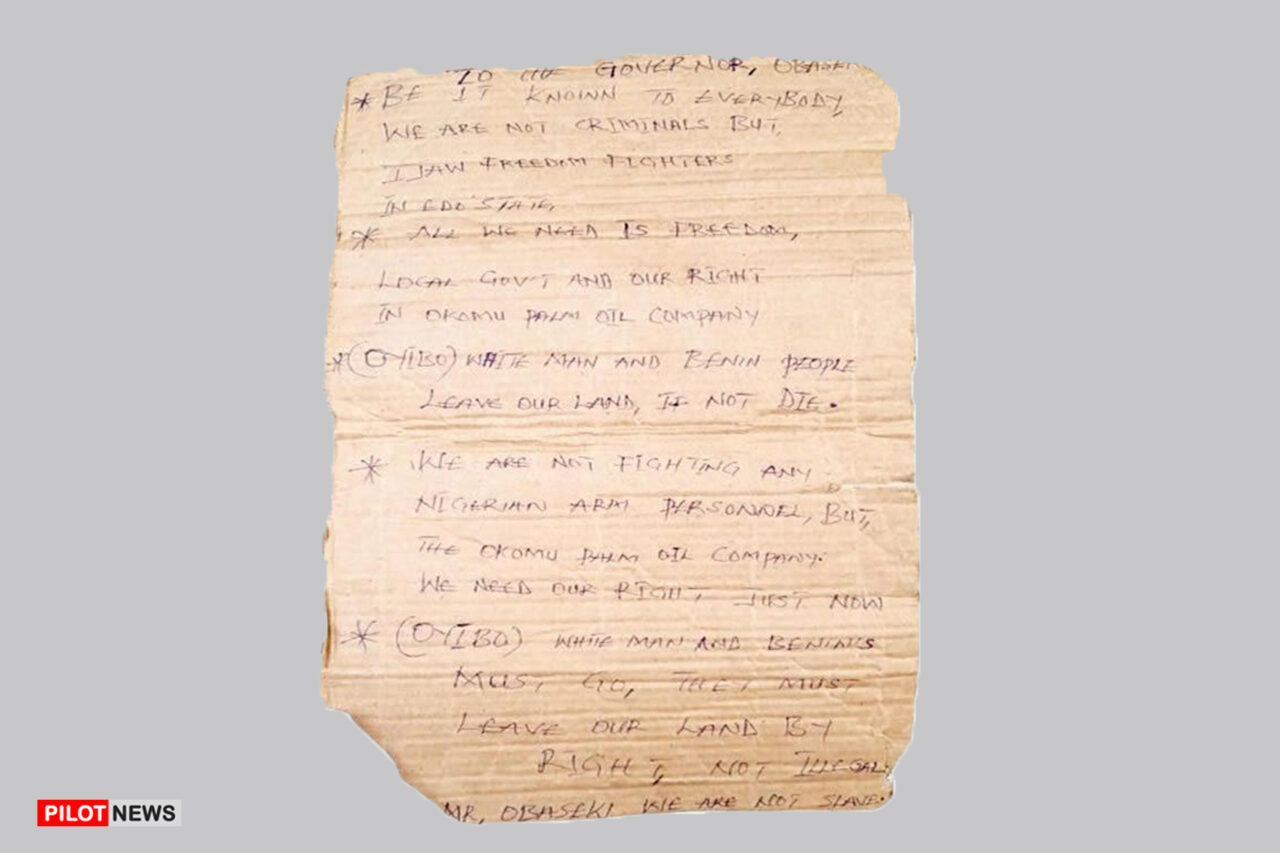 TO THE GOVERNOR, OBASEKI
* BE IT KNOWN TO EVERYBODY,
WE ARE NOT CRIMINALS BUT,
IJAW FREEDOM FIGHTERS
IN EDO STATE,
* ALL WE NEED IS FREEDOM,
LOCAL GOV'T AND OUR RIGHT
IN OKOMU PALM OIL COMPANY
* (OYIBO) WHITE MAN AND BENIN PEOPLE
LEAVE OUR LAND, IF NOT DIE.
* WE ARE NOT FIGHTING ANY
NIGERIAN ARM PERSONNEL, BUT,
THE OKOMU PALM OIL COMPANY.
WE NEED OUR RIGHT, JUST NOW
* (OYIBO) WHITE MAN AND BENINIS
MUST GO, THEY MUST
LEAVE OUR LAND BY
RIGHT, NOT ILLEGAL.
MR, OBASEKI WE ARE NOT SLAVE.
PILOT NEWS